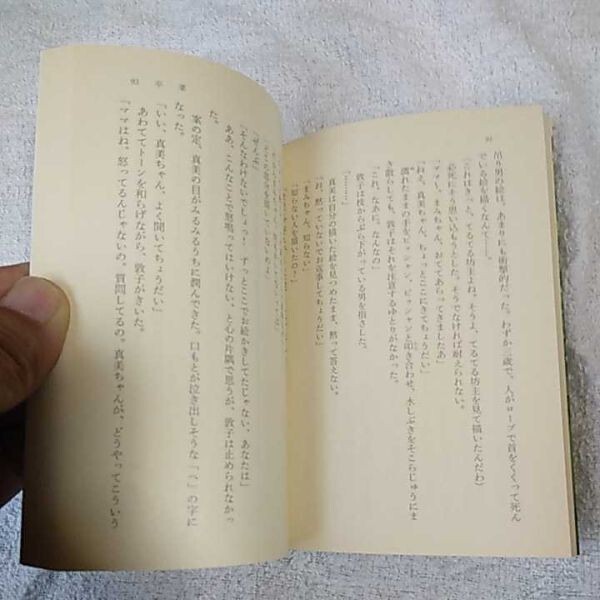 吊り男の絵は、あまりにも衝撃的だった。わずか三歳で、人がロープで首をくくって死ん
でいる絵を描くなんて――。
(これはきっと、てるてる坊主よね。そうよ、てるてる坊主を見て描いたんだわ)
必死にそう思い込もうとした。そうでなければ耐えられない。
「ママー、まみちゃん、おててあらってきましたあ」
「ねえ、真美ちゃん、ちょっとここにきてちょうだい」
濡れたままの手をピッシャン、ピッシャンと叩き合わせ、水しぶきをそこらじゅうにま
き散らしても、敦子はそれを注意するゆとりがなかった。
「これ、なあに。なんなの」
敦子は枝からぶら下がっている男を指さした。
「……」
真美は自分の描いた絵を見つめたまま、黙って答えない。
「ね、黙っていないでお返事してちょうだい」
「まみちゃん、知らない」
「知らない人を描いたの?」
「ぜんぶ
「そんなわけないでしょっ! ずっとここでお絵かきしてたじゃない、あなたは」
ああ、こんなことで怒鳴ってはいけない、と心の片隅で思うが、敦子は止められなかっ
た。
案の定、真美の目がみるみるうちに潤んできた。口もとが泣き出しそうな「へ」の字に
なった。
「いい、真美ちゃん。よく聞いてちょうだい」
あわててトーンを和らげながら、敦子がきいた。
「ママはね、怒ってるんじゃないの。質問してるの。真美ちゃんが、どうやってこういう